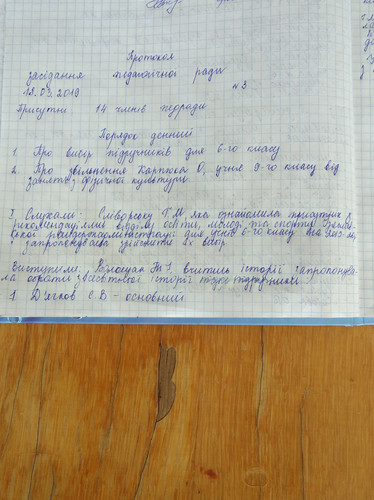 Протокол
засідання педагогічної ради
19.03.2019 №3
Присутні 14 членів педради
Порядок денний
1. Про вибір підручників для 6-го класу
2. Про звільнення Карпюка О, учня 9-го класу від
занять з фізичної культури
І. Слухали: яка ознайомила присутніх з
рекомендаціями відділу освіти, молоді та спорту
райдержадміністрації для учнів 6-го класу
запропонувала здійснити їх вибір
Виступили: вчитель історії запропонува-
ла обрати з всесвітньої історії такі підручники
1 Д'ячков С.В - основний